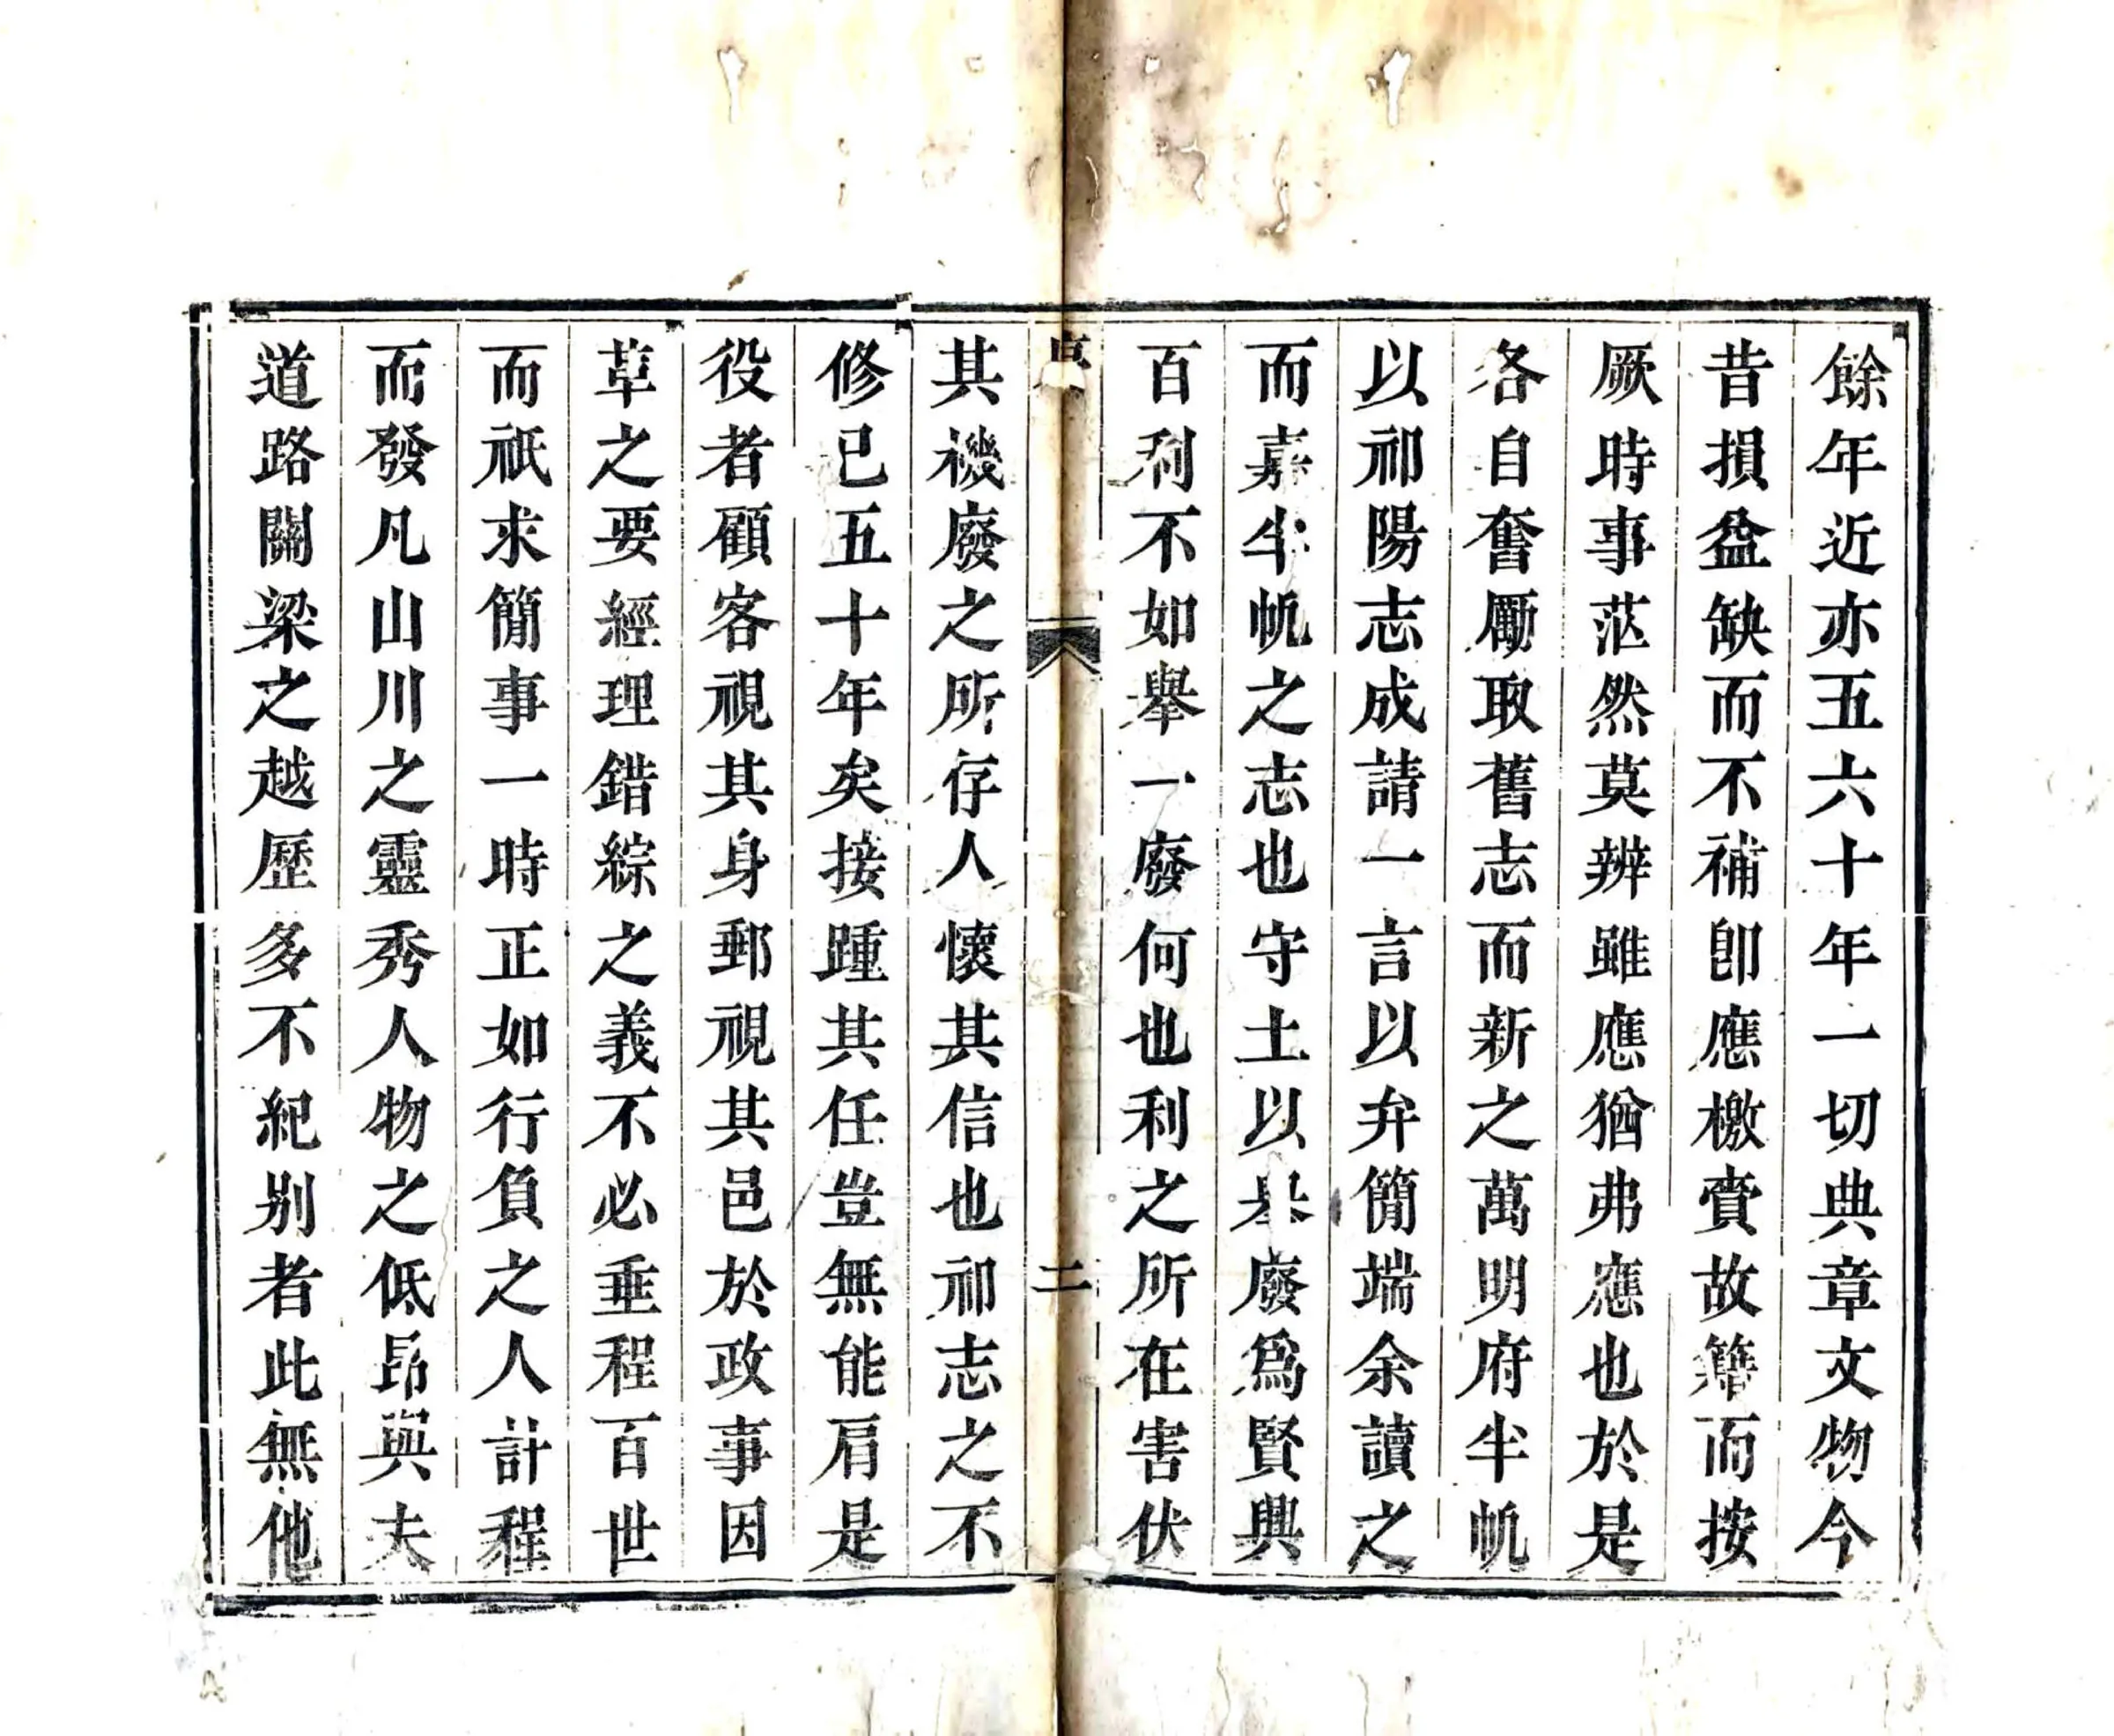 餘年近亦五六十年一切典章文物今
昔損益缺而不補卽應檄賫故籍而按
厥時事茫然莫辨雖應猶弗應也於是
各自奮勵取舊志而新之萬明府半帆
以祁陽志成請一言以弁簡端余讀之
而嘉半帆之志也守土以來廢爲賢興
百利不如舉一廢何也利之所在害伏
二
其禨廢之所存人懷其信也祁志之不
修已五十年矣接踵其任豈無能肩是
役者顧客視其身郵視其邑於政事因
革之要經理錯綜之義不必垂程百世
而祇求簡事一時正如行負之人計程
而發凡山川之靈秀人物之低昂與夫
道路關梁之越歷多不紀别者此無他